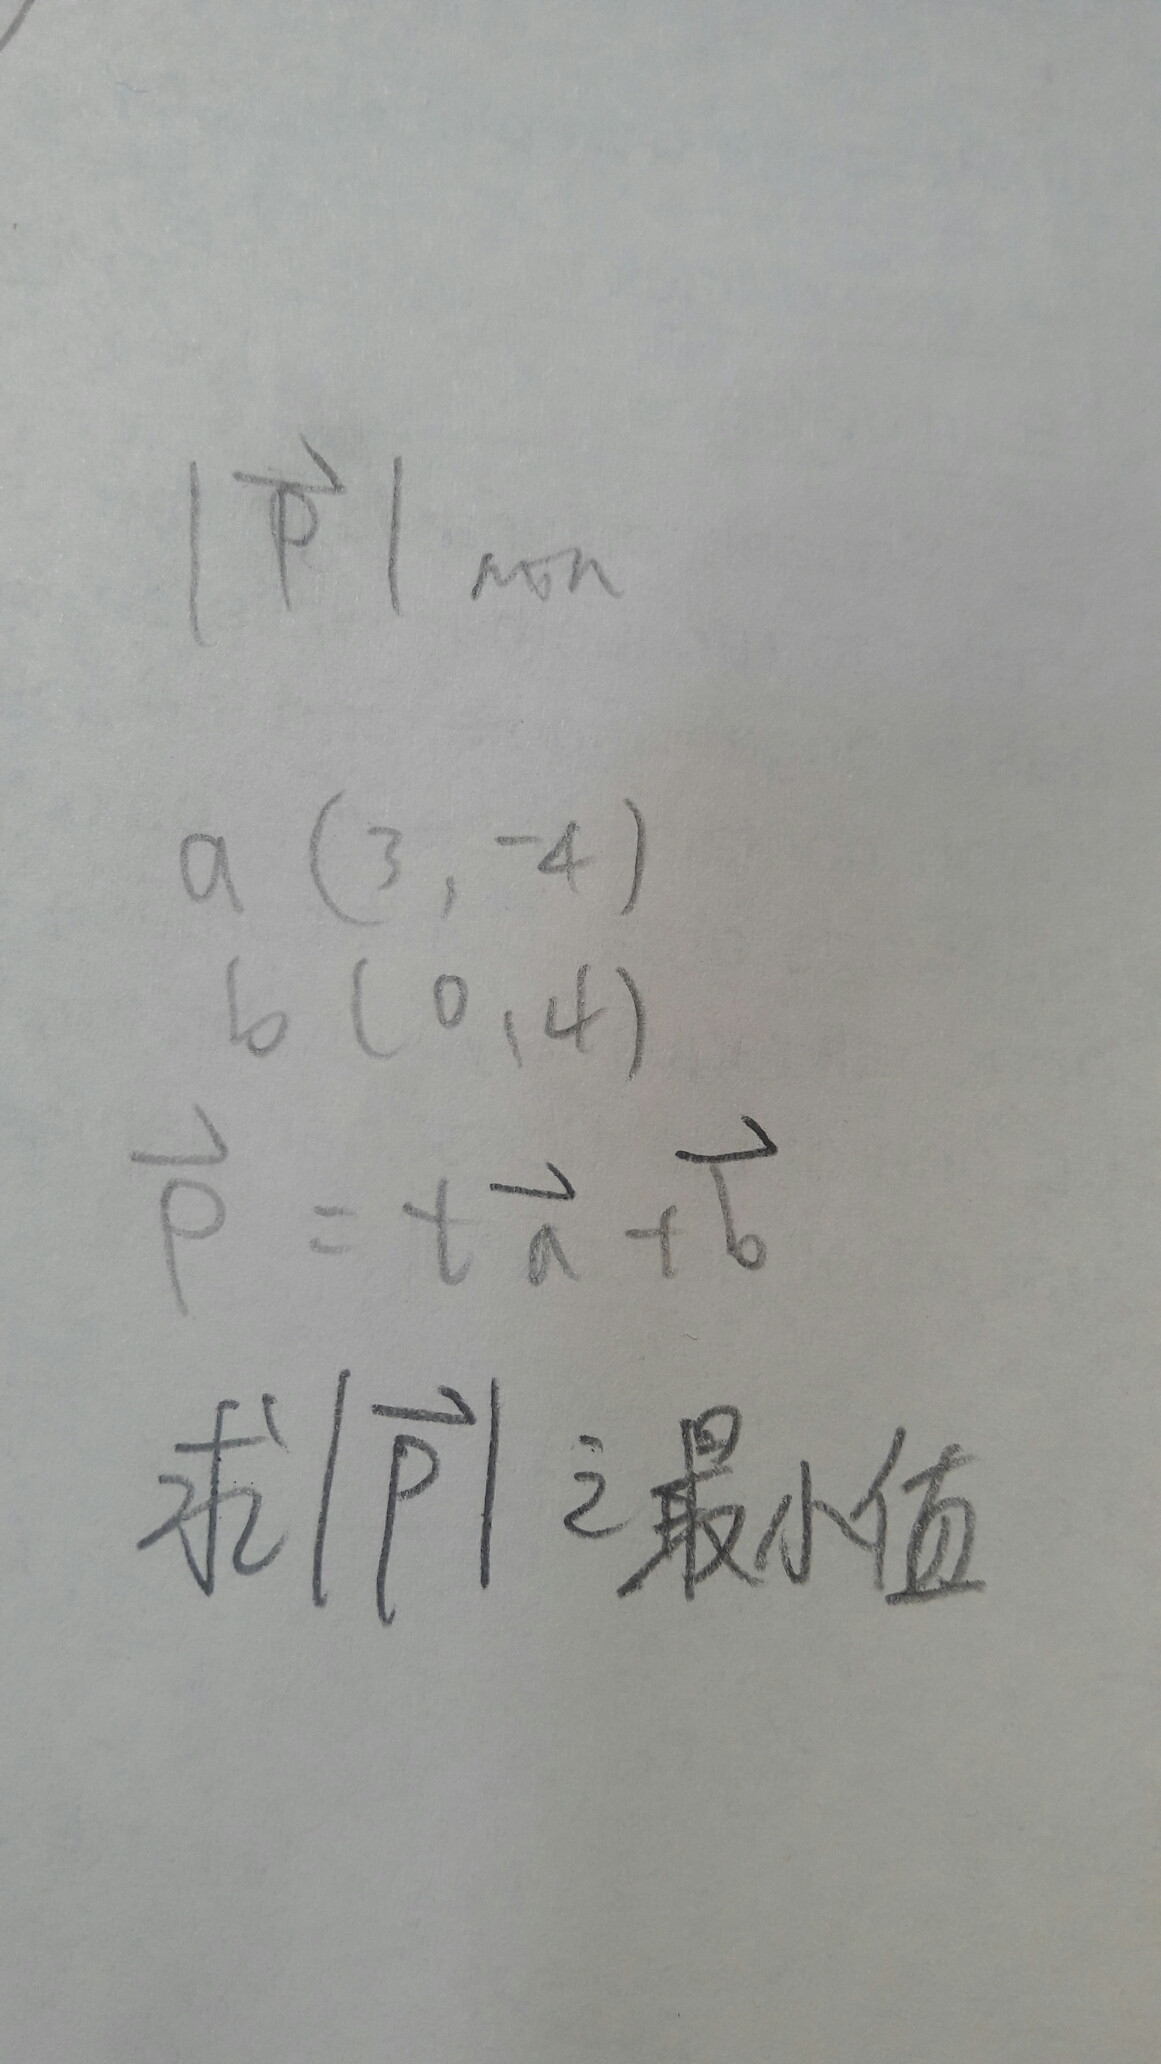 |p⃗| min
a (3, -4)
b (0, 4)
p⃗ = ta⃗ + b⃗
求|p⃗|之最小值